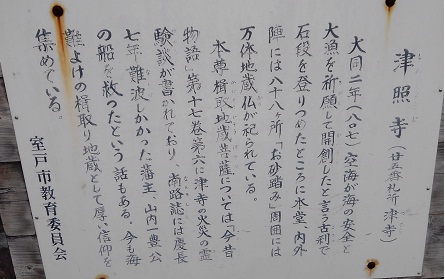 津照寺(廿五番札所 津寺)
大同二年(八〇七)空海が海の安全と
大漁を祈願して開創したと言う古刹で
石段を登りつめたところに本堂、内外
陣には八十八ヶ所「お砂踏み」周囲には
万体地蔵仏が祀られている。
本尊楫取地蔵菩薩については「今昔
物語」第十七巻第六に津寺の火災の霊
験談が書かれており、南路誌には慶長
七年、難波しかかった藩主、山内一豊公
の船を救ったという話もある。今も海
難よけの楫取り地蔵として厚い信仰を
集めている。
室戸市教育委員会